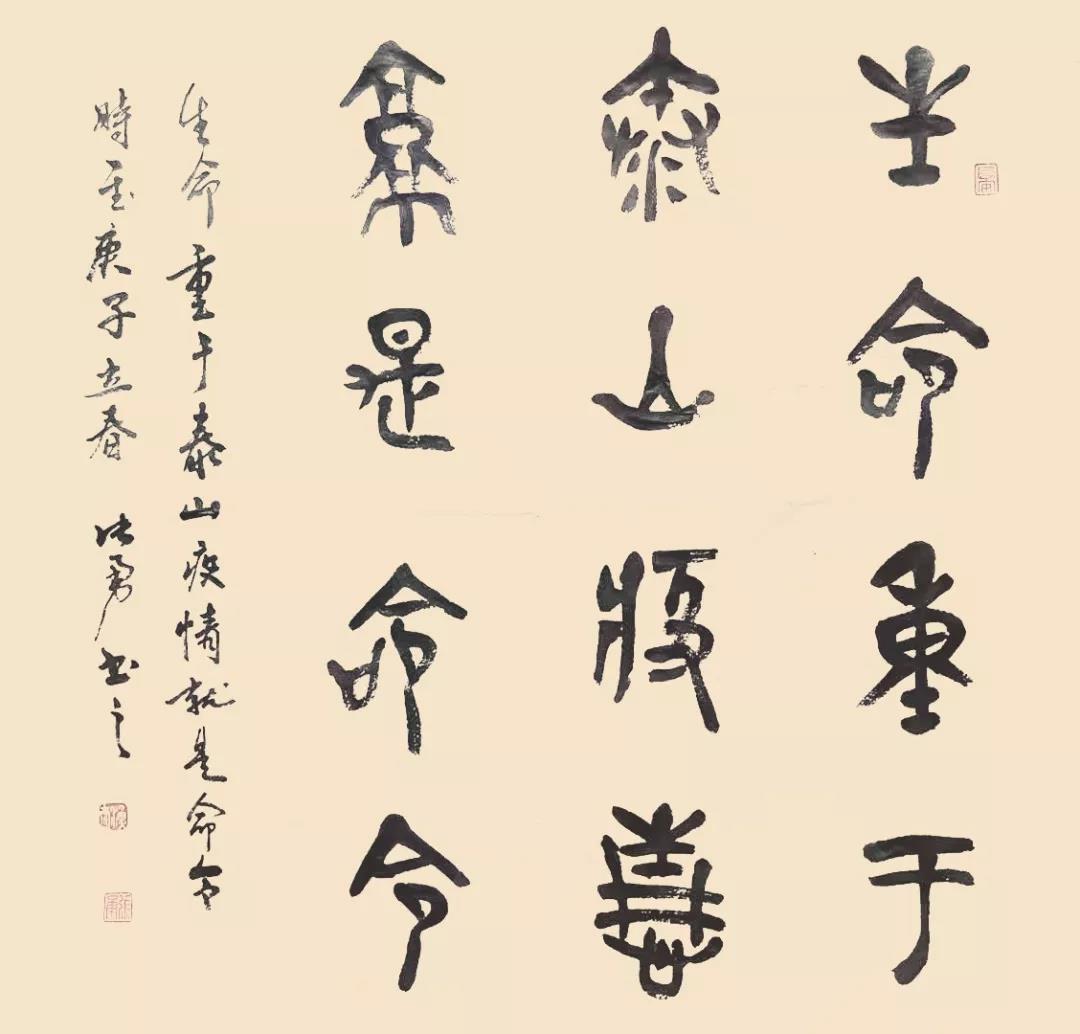 生命重于
泰山疫情
就是命令
生命重于泰山疫情就是命令
時至庚子立春 張勇书之